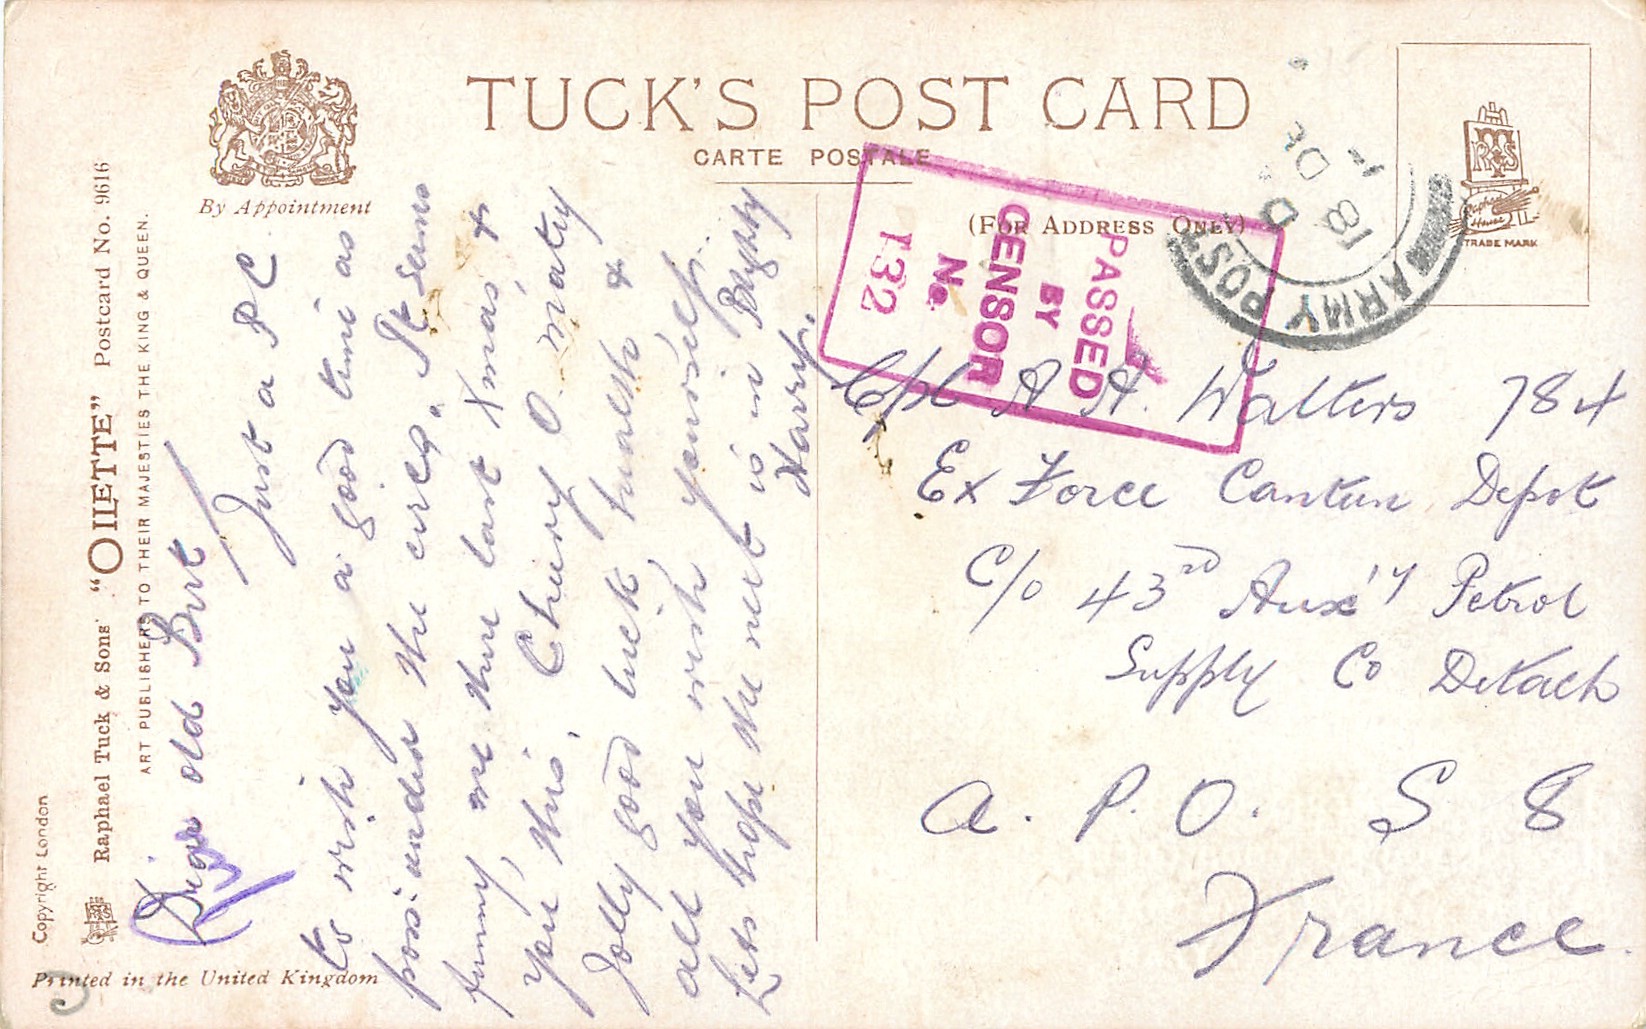 TUCK'S POST CARD
CARTE POSTALE
By Appointment
(FOR ADDRESS ONLY)
TRADE MARK
Copyright London
Raphael Tuck & Sons' "OILETTE" Postcard No. 9616
ART PUBLISHERS TO THEIR MAJESTIES THE KING & QUEEN.
Printed in the United Kingdom
PASSED
BY
CENSOR
No
1332
ARMY POST
Dear old Bert
Just a PC
to wish you a good time as
poss: under the circs. It seems
funny, me there last Xmas &
you this. Cheery O. matey
Jolly good luck health &
all you wish yourself.
Lets hope the next is in Blighty
Harry.
Cpl A A. Walters 784
Ex Force Canteen Depot
C/o 43rd Aux'y Petrol
Supply Co Detach
A. P. O. S 8
France.